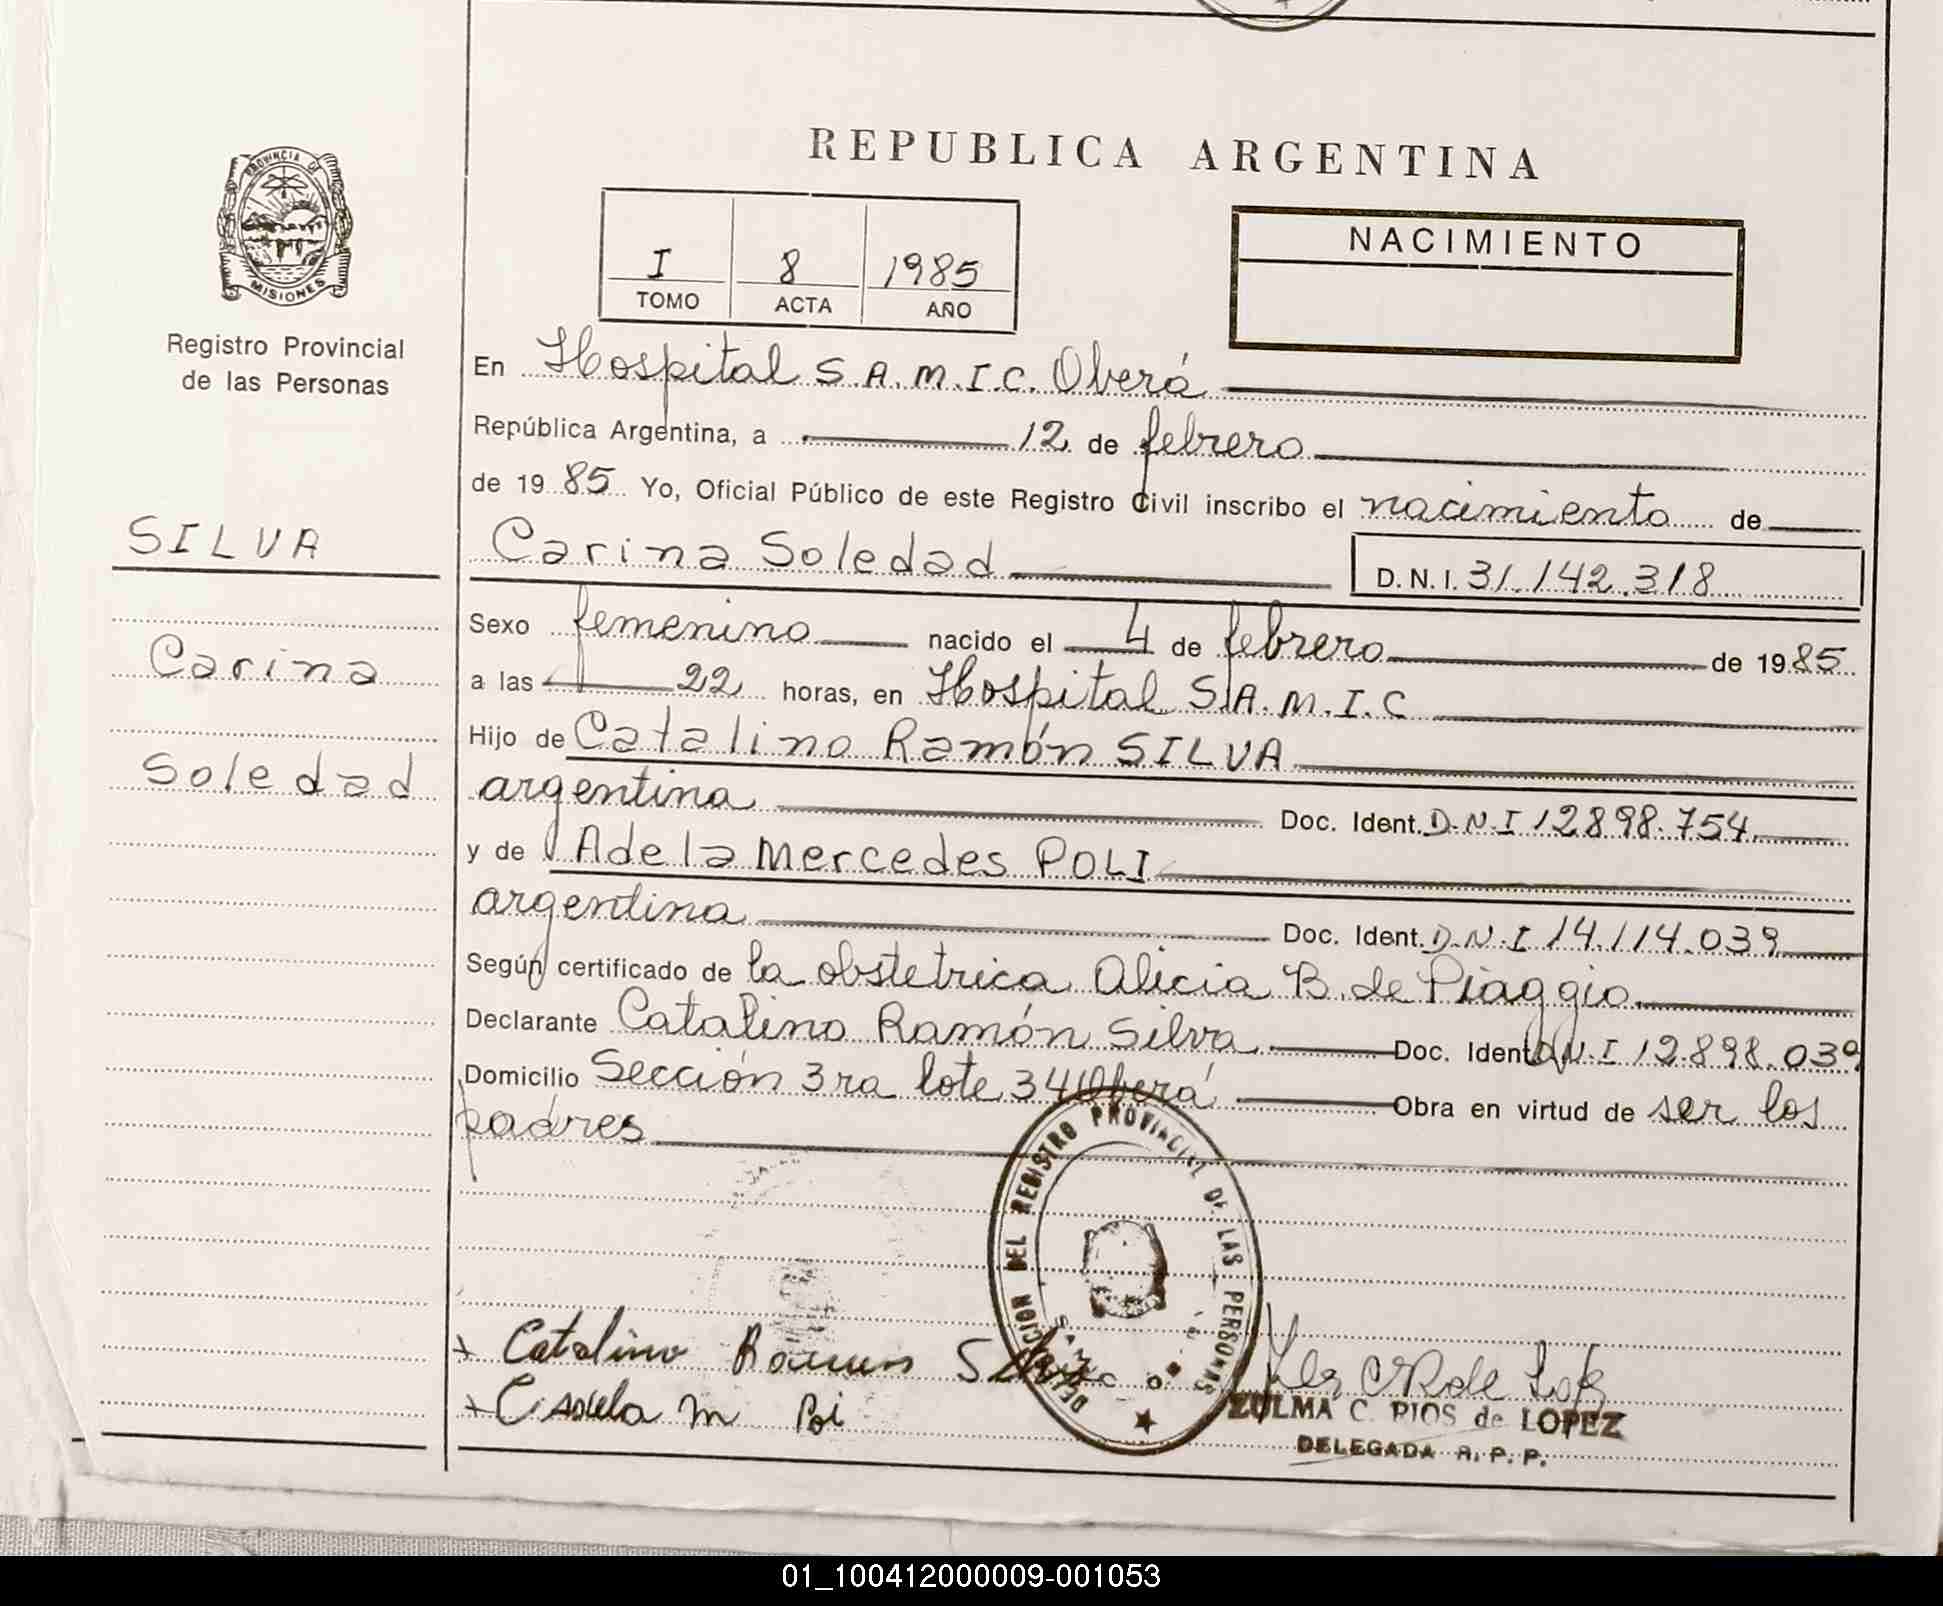 REPUBLICA ARGENTINA
PROVINCIA DE
MISIONES
Registro Provincial
de las Personas
I 8 1985
TOMO ACTA AÑO
NACIMIENTO
En Hospital S.A.M.I.C. Oberá
República Argentina, a 12 de febrero
de 1985 Yo, Oficial Público de este Registro Civil inscribo el nacimiento de
SILVA
Carina Soledad D.N.I. 31.142.318
Sexo femenino nacido el 4 de febrero de 1985
Carina
a las 22 horas, en Hospital S.A.M.I.C
Hijo de Catalino Ramón SILVA
Soledad
argentina Doc. Ident. D.N.I 12898.754
y de Adela Mercedes POLI
argentina Doc. Ident. D.N.I 14.114.039
Según certificado de la obstetrica Alicia B. de Piaggio
Declarante Catalino Ramón Silva Doc. Ident. D.N.I 12.898.039
Domicilio Sección 3ra lote 34 Oberá Obra en virtud de ser los
padres
DELEGACION DEL REGISTRO PROVINCIAL DE LAS PERSONAS
Catalino Ramon Silva
ZULMA C. RIOS de LOPEZ
DELEGADA R. P. P.
01_100412000009-001053